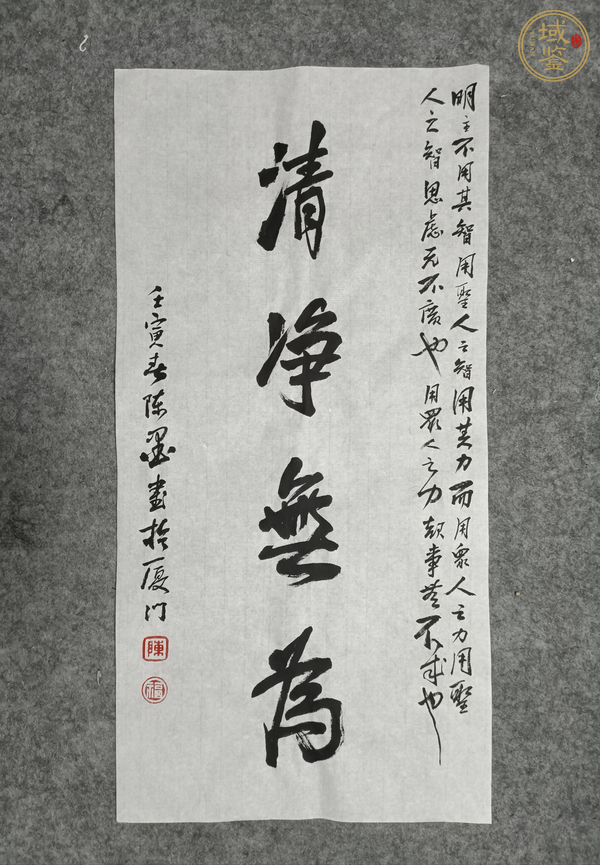 明主不用其智用聖人之智用其力而用眾人之力用聖
人之智思慮无不廣也用眾人之力 事者不成也
清净無為
壬寅春陈墨書於厦门
陳
域鉴